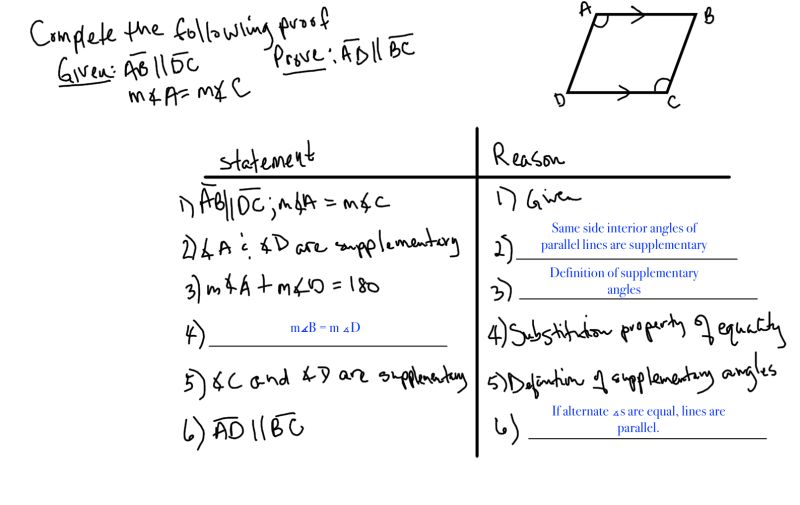 Complete the following proof
Given: AB || DC    Prove: AD || BC
m∡A = m∡C
A
B
D
C
statement    Reason
1) AB || DC; m∡A = m∡C    1) Given
2) ∡A & ∡D are supplementary    2) Same side interior angles of
parallel lines are supplementary
3) m∡A + m∡D = 180    3) Definition of supplementary
angles
4) m∡B = m∡D    4) Substitution property of equality
5) ∡C and ∡D are supplementary    5) Definition of supplementary angles
6) AD || BC    6) If alternate ∡s are equal, lines are
parallel.